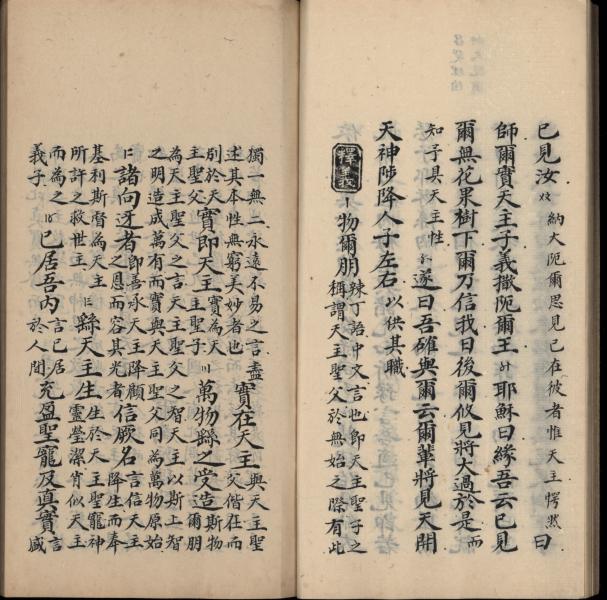 已見汝納大阨爾思見已在彼者惟天主愕然曰
師爾實天主子義撒阨爾王耶穌曰緣吾云已見
爾無花果樹下爾乃信我日後爾攸見將大過於是而
知予具天主性遂曰吾確與爾云爾輩將見天開
天神陟降人子左右以供其職
釋義物爾朋辣丁語中文言也即天主聖子之
稱謂天主聖父於無始之際有此
獨一無二永遠不易之言盡
述其本性無窮美妙者也實在天主與天主聖
父偕在而
別於天
主聖父實即天主實為天
主聖子萬物繇之受造斯物
爾朋
為天主聖父之言天主聖父之智天主以斯上智
之明造成萬有而實與天主聖父同為萬物原始
諸向迓者即善承天主降顧
之恩而容其光者信厥名言信天主
降生而奉
基利斯督為天主
所許之救世主繇天主生生於天主聖寵神
靈瑩潔肖似天主
而為之
義子已居吾內言已居
於人間充盈聖寵及真實言
咸